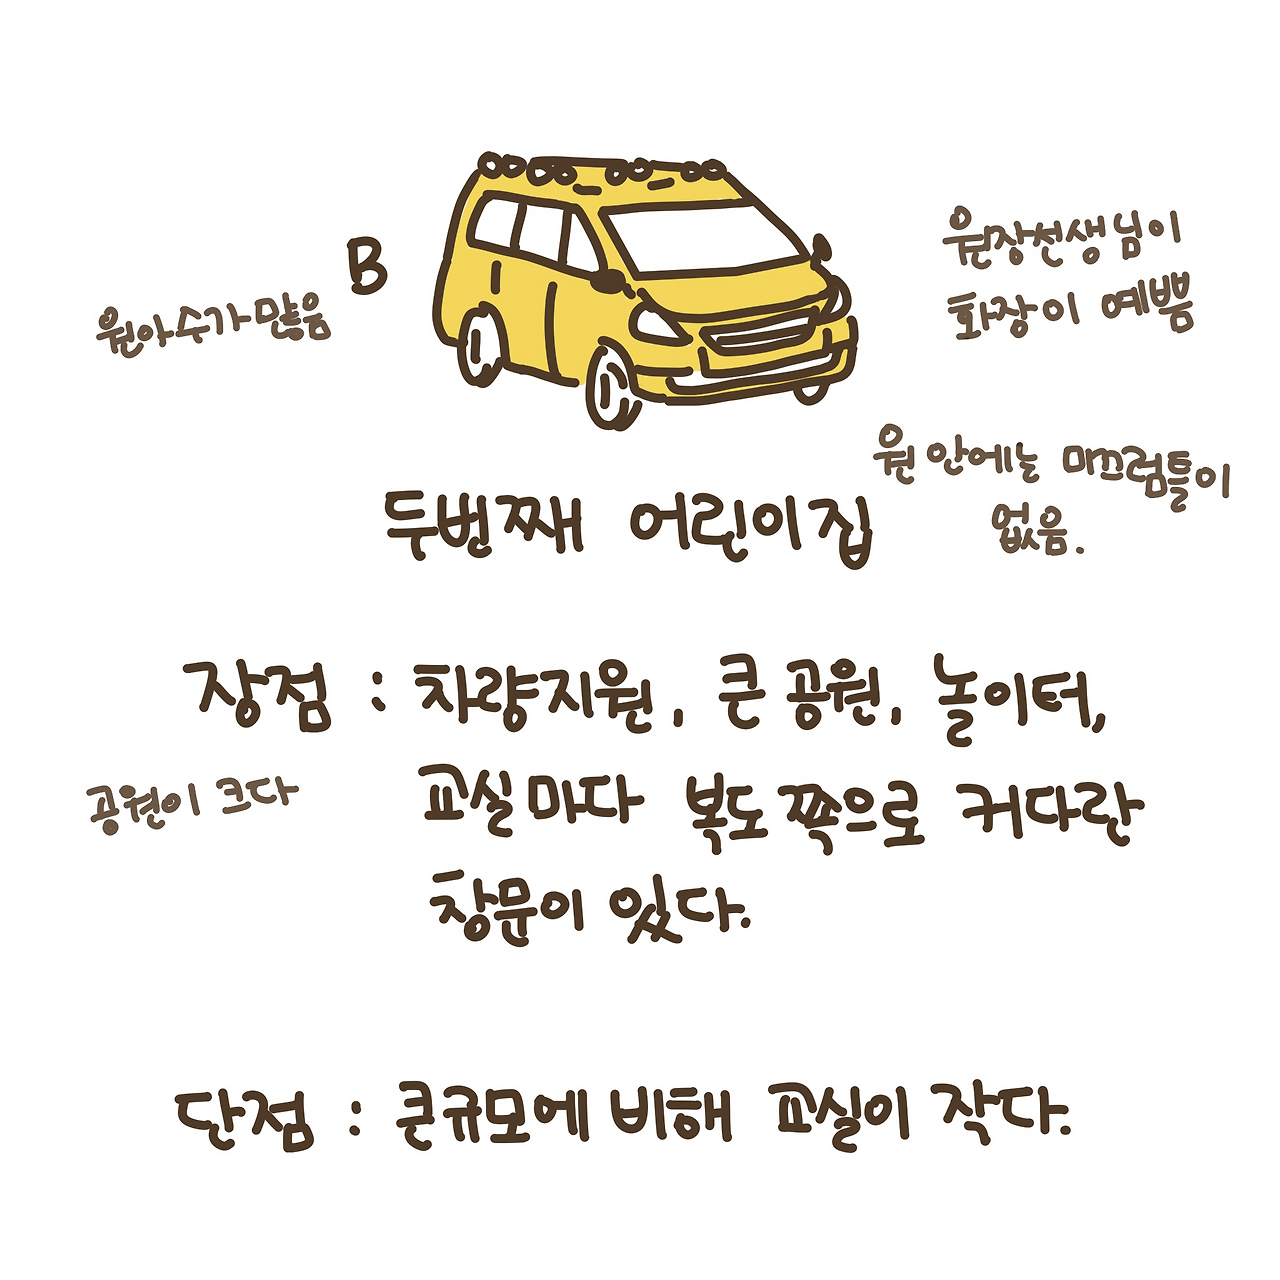 B
원아수가많음
원장선생님이
화장이 예쁨
원안에는 미끄럼틀이
없음.
두번째 어린이집
장점 : 차량지원, 큰공원, 놀이터,
교실마다 복도쪽으로 커다란
창문이 있다.
공원이 크다
단점 : 큰규모에 비해 교실이 작다.